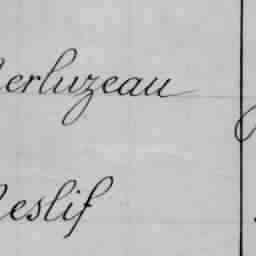 erluzeau
eslif